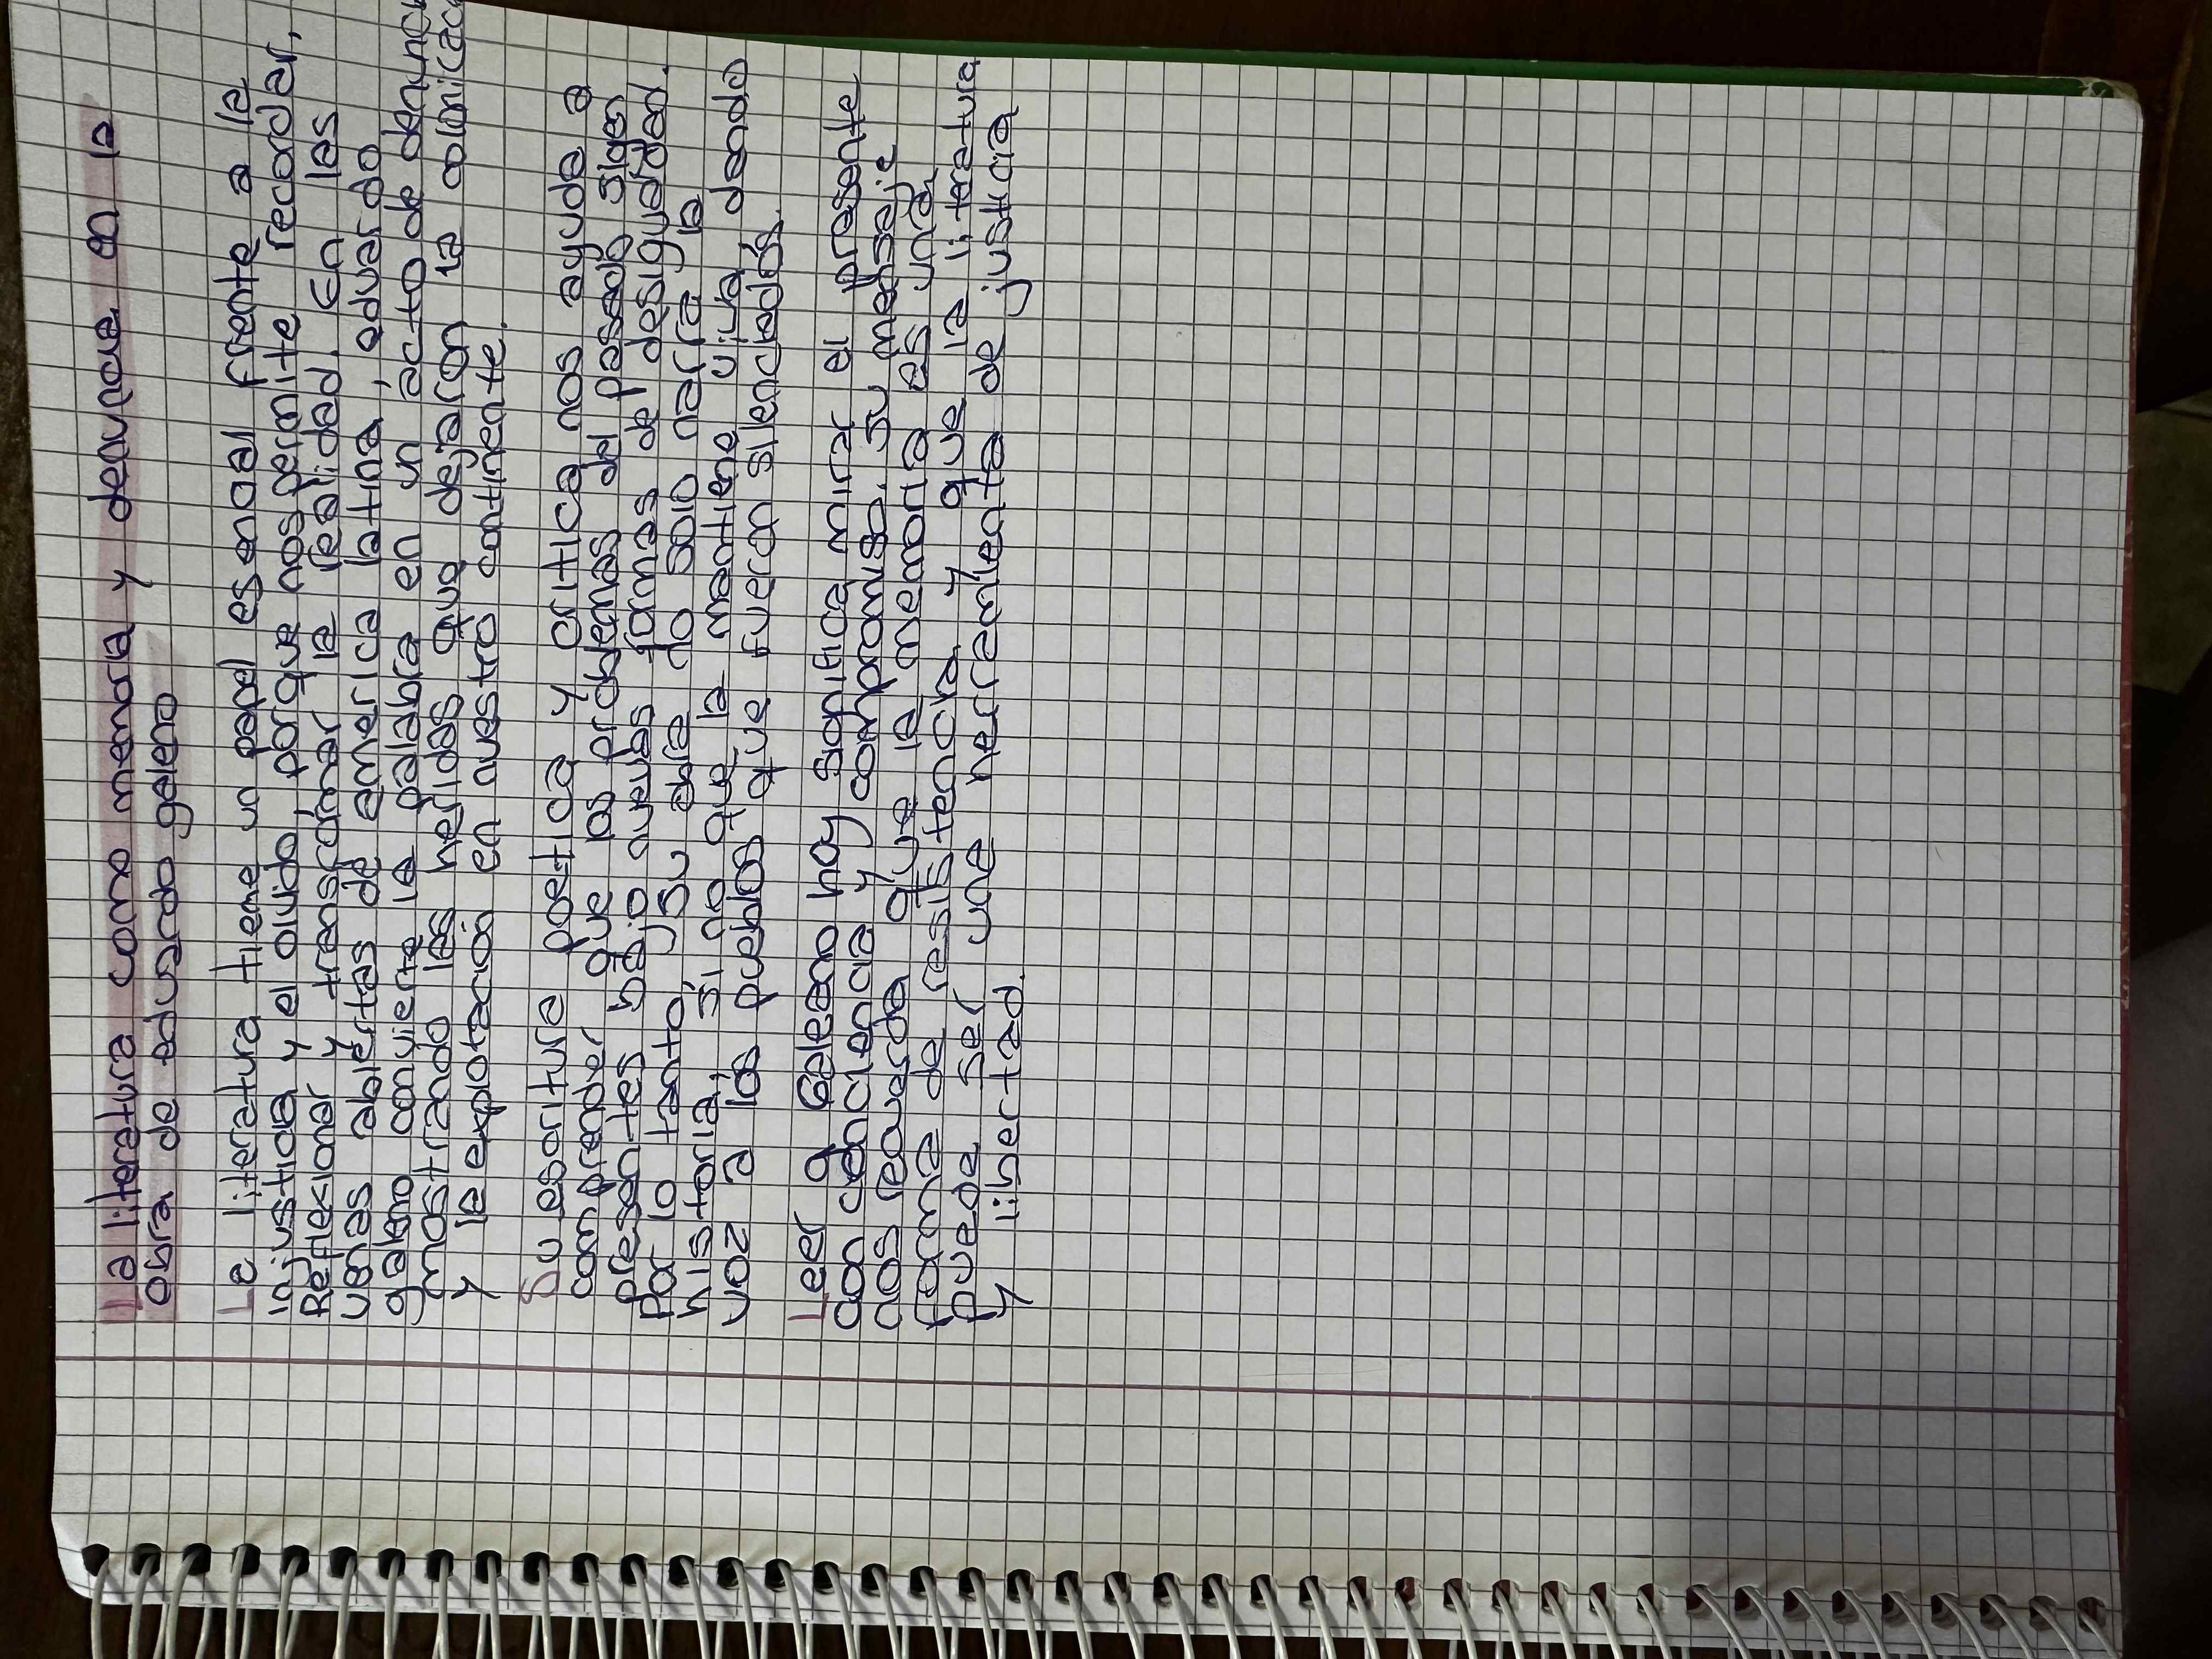 La literatura como memoria y denuncia en la
obra de eduardo galeano
La literatura tiene un papel esencial frente a la
injusticia y el olvido, porque nos permite recordar,
Reflexionar y transformar la realidad. En las
venas abiertas de america latina, eduardo
galeano convierte la palabra en un acto de denunci
mostrando las heridas que dejaron la colonizac
y la explotación en nuestro continente.
Su escritura poetica y critica nos ayuda a
comprender que los problemas del pasado sigen
presentes bajo nuevas formas de desigualdad.
Por lo tanto, su obra no solo narra la
historia, si no que la mantiene viva, dando
voz a los pueblos que fueron silenciados.
Leer a Galeano hoy significa mirar el presente
con conciencia y compromiso. Su mensaje
nos recuerda que la memoria es una
forma de resistencia y que la literatura
puede ser una herramienta de justicia
y libertad.